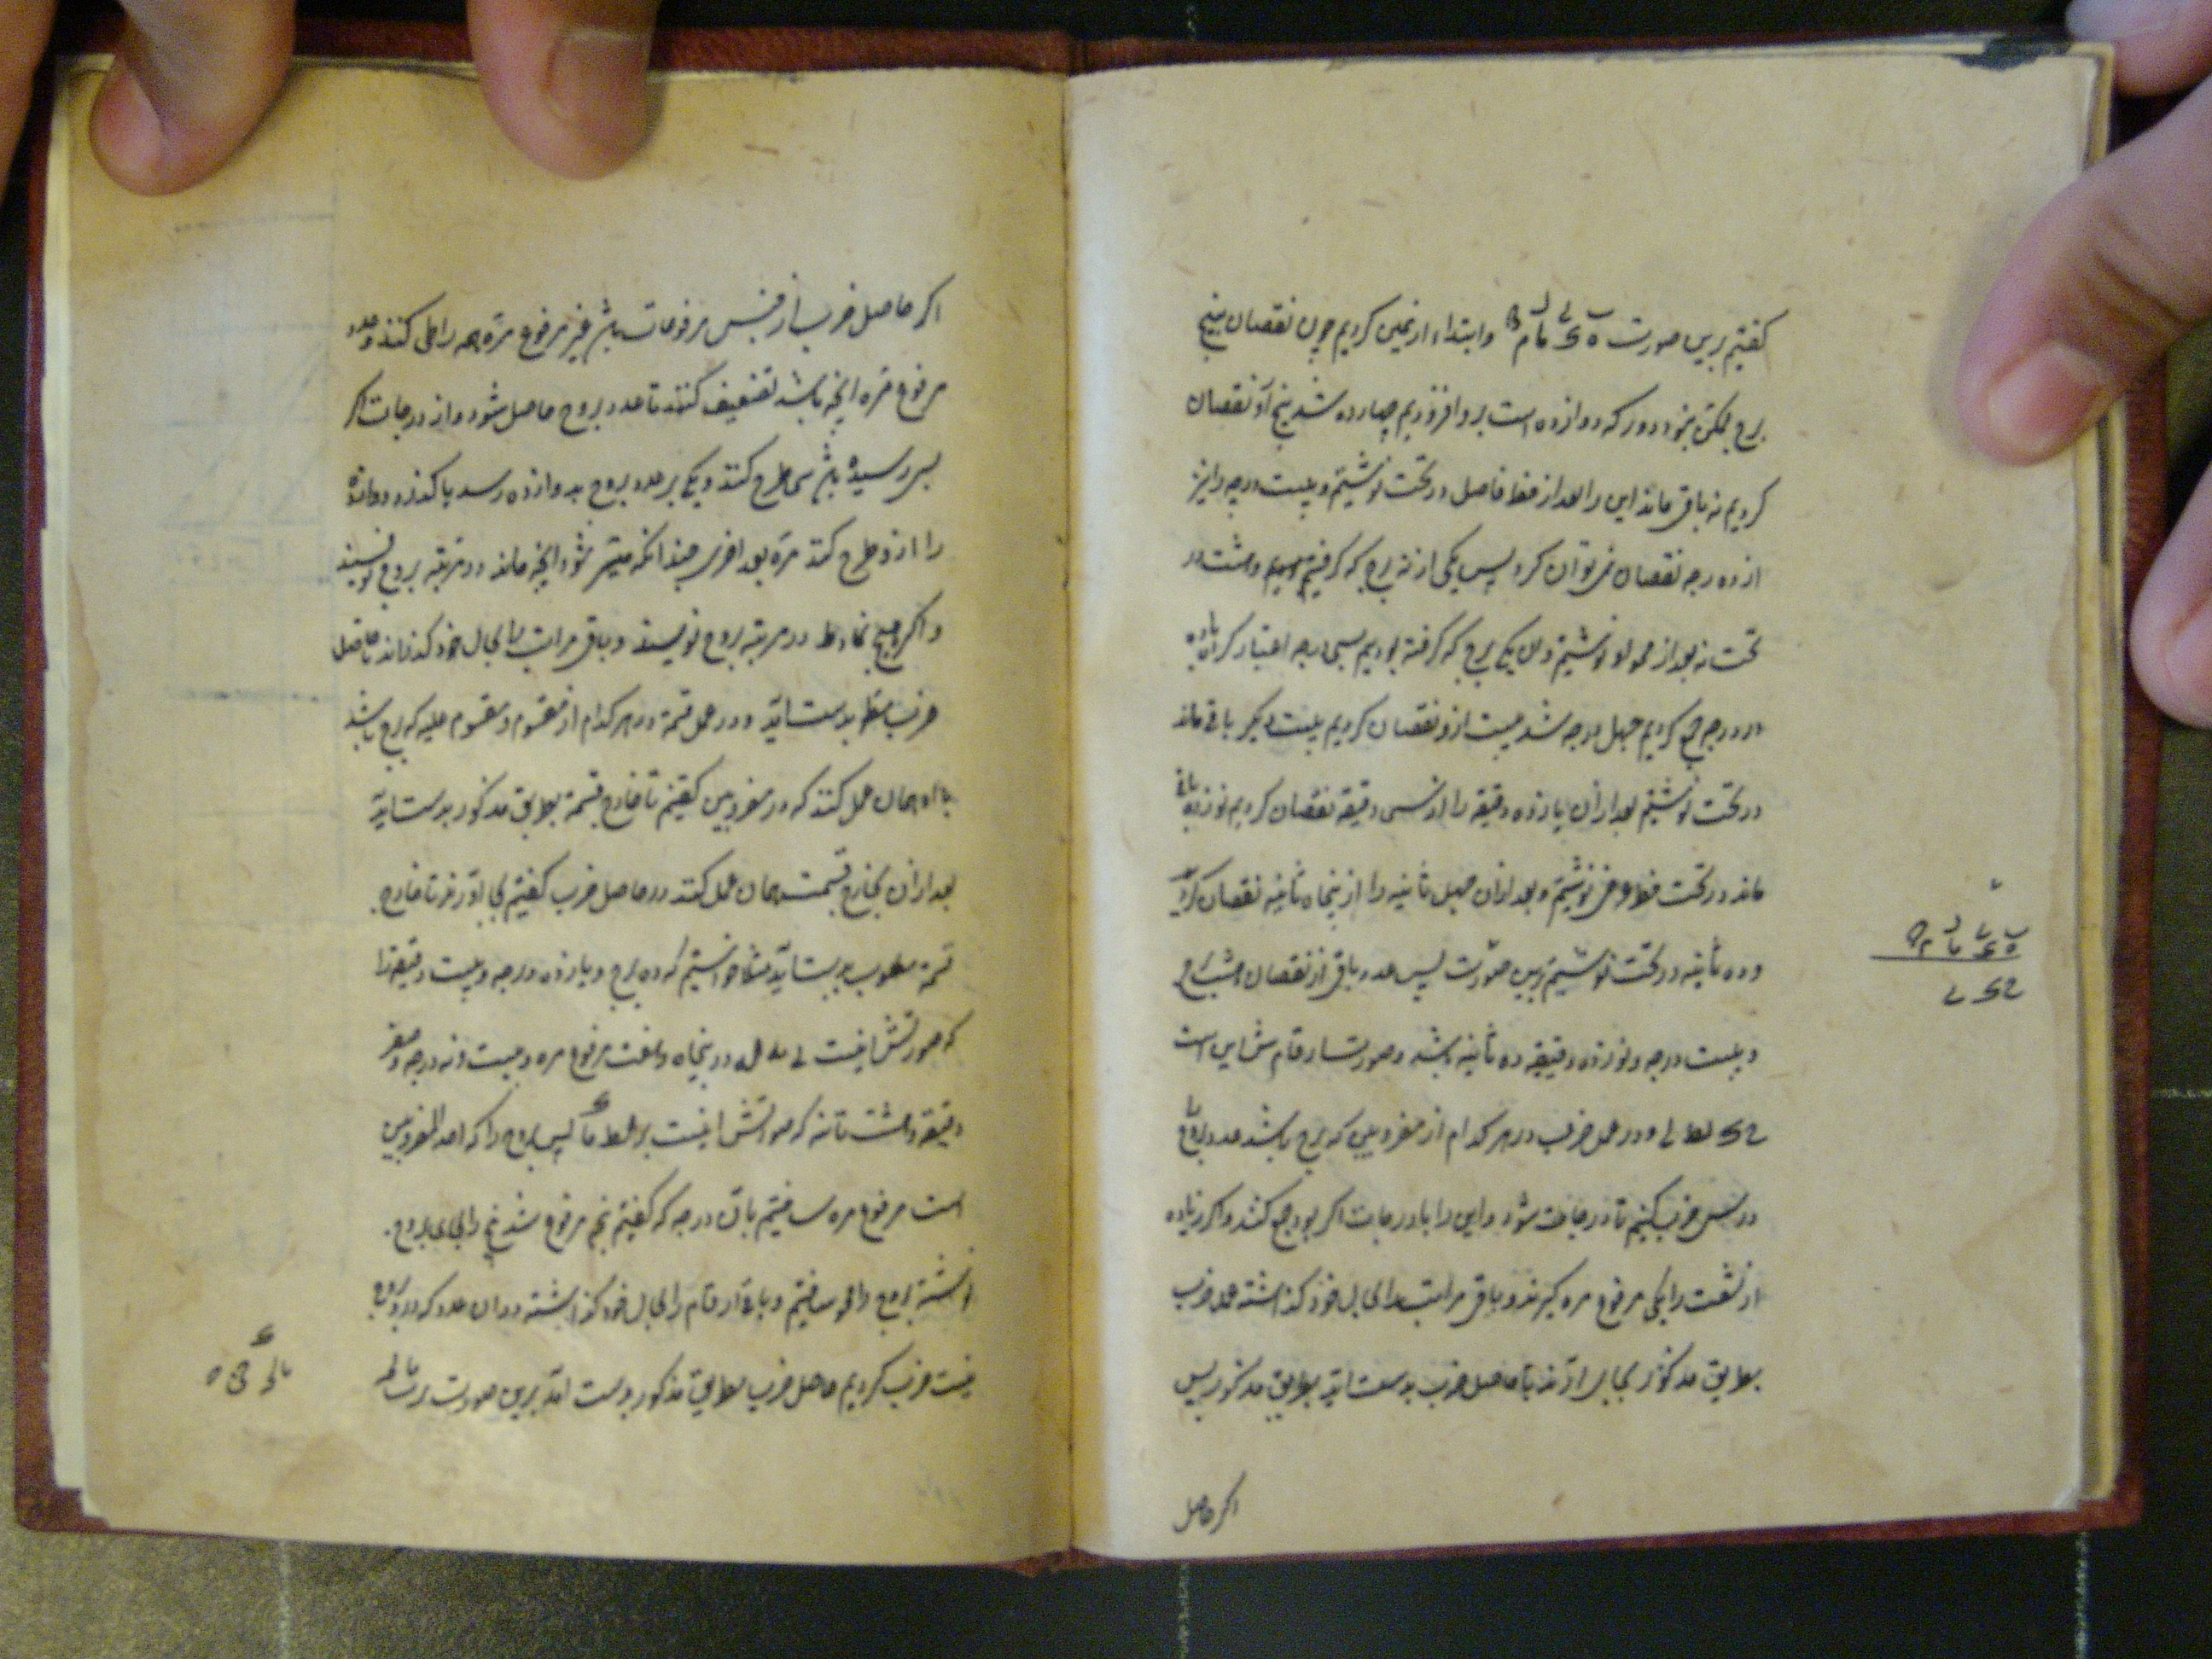 کفتیم برین صورت وابتداء از یمین کردیم چون نقصان پنج
برج ممکن نبود دور که دوازده است برو افزودیم چهارده شد پنج ازو نقصان
کردیم نه باقی ماند این را بعد از خط فاصل در تحت نوشتیم و بیست درجه را نیز
از ده درجه نقصان نمی توان کرد پس یکی از نه برج که کرفتیم وهشت در
تحت نه بعد از محو او نوشتیم وان یک برج که کرفته بودیم سی درجه اعتبار کرده با ده
درجه جمع کردیم چهل درجه شد بیست ازو نقصان کردیم بیست دیکر باقی ماند
در تحت نوشتیم بعد ازان یازده دقیقه را از سی دقیقه نقصان کردیم نوزده باقی
ماند در تحت خط عرضی نوشتیم و بعد ازان چهل ثانیه را از پنجاه ثانیه نقصان کردیم
وده ثانیه در تحت نوشتیم برین صورت پس عدد باقی از نقصان هشت برج
وبیست درجه ونوزده دقیقه ده ثانیه باشد وصورت ارقامش این است
ح ک یط ی ودر عمل ضرب در هر کدام از مضروبین که برج باشد عدد بروج
در سی ضرب کنیم تا درجات شود واین را با درجات اکر بود جمع کنند واکر زیاده
از شصت را یکی مرفوع مره کیرند وباقی مراتب را بحال خود کذاشته عمل ضرب
بطریق مذکور بجای ارند تا حاصل ضرب بدست اید بطریق مذکور پس
اکر حاصل
اکر حاصل ضرب از جنس مرفوعات باشد غیر مرفوع مره همه را طی کنند وعدد
مرفوع مره انچه باشد تضعیف کنند تا عدد بروج حاصل شود واز درجات اکر
بسی رسیده باشد سی طرح کنند ویکی بر عدد بروج بدوازده رسد یا کذرد دوازده
را ازو طرح کنند مره بعد اخری چندانکه میسر شود انچه ماند در مرتبه بروج نویسند
واکر هیچ نماند در مرتبه بروج نویسند وباقی مراتب را بحال خود کذرانند تا حاصل
ضرب مطلوب بدست اید ودر عمل قسمة در هر کدام از مقسوم ومقسوم علیه که برج باشد
با او همان عمل کنند که در مضروبین کفتیم تا خارج قسمة بطریق مذکور بدست اید
بعد ازان بخارج قسمت همان عمل کنند در حاصل ضرب کفتیم بجا اورند تا خارج
قسمة مطلوب بدست اید مثلا خواستیم که ده برج ویازده درجه وبیست دقیقه را
که صورتش اینست در پنجاه وهفت مرفوع مره وبیست ونه درجه وصفر
دقیقه وهشت ثانیه که صورتش اینست پس بروج را که احد المضروبین
است مرفوع مره ساختیم با ان درجه که کفتیم پنج مرفوع شد پنج را بجای بروج
نوشته بروج را محو ساختیم وباقی ارقام را بحال خود کذاشته در ان عدد که درو بروج
نیست ضرب کردیم حاصل ضرب بطریق مذکور بدست امد برین صورت